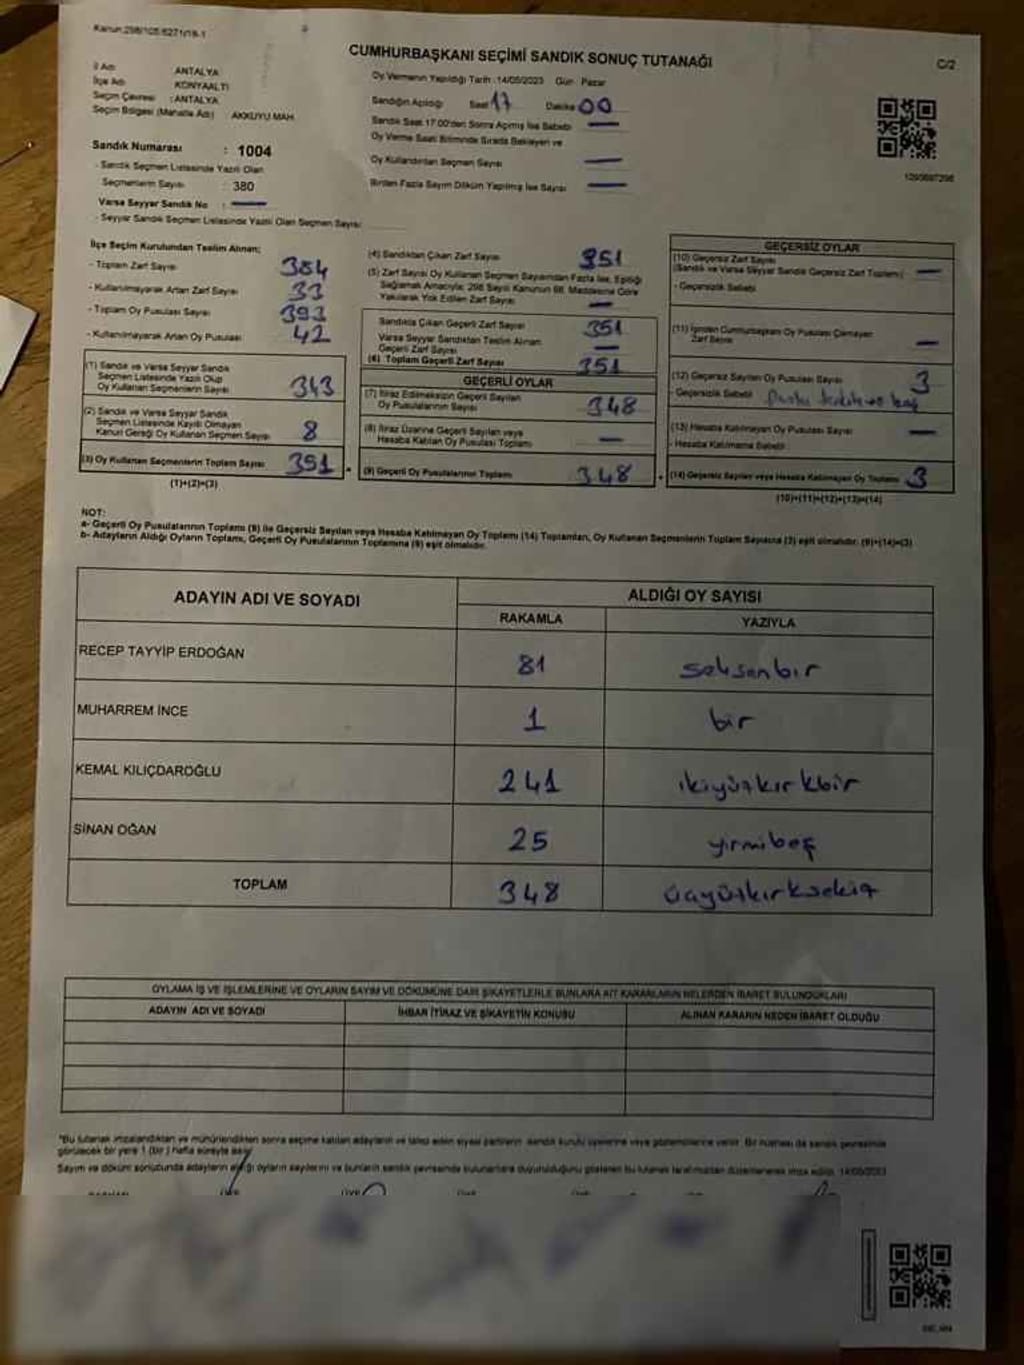 Kanun:298/105.6271/19-1
CUMHURBAŞKANI SEÇİMİ SANDIK SONUÇ TUTANAĞI
C/2
İl Adı : ANTALYA
İlçe Adı : KONYAALTI
Seçim Çevresi : ANTALYA
Seçim Bölgesi (Mahalle Adı) : AKKUYU MAH.
Sandık Numarası : 1004
- Sandık Seçmen Listesinde Yazılı Olan
Seçmenlerin Sayısı : 380
Varsa Seyyar Sandık No : —
- Seyyar Sandık Seçmen Listesinde Yazılı Olan Seçmen Sayısı:
Oy Vermenin Yapıldığı Tarih :14/05/2023 Gün : Pazar
Sandığın Açıldığı Saat 17 Dakika 00
Sandık Saat 17.00'den Sonra Açılmış İse Sebebi —
Oy Verme Saati Bitiminde Sırada Bekleyen ve
Oy Kullandırılan Seçmen Sayısı —
Birden Fazla Sayım Döküm Yapılmış İse Sayısı —
1293697298
İlçe Seçim Kurulundan Teslim Alınan;
- Toplam Zarf Sayısı 384
- Kullanılmayarak Artan Zarf Sayısı 33
- Toplam Oy Pusulası Sayısı 393
- Kullanılmayarak Artan Oy Pusulası 42
(1) Sandık ve Varsa Seyyar Sandık
Seçmen Listesinde Yazılı Olup
Oy Kullanan Seçmenlerin Sayısı 343
(2) Sandık ve Varsa Seyyar Sandık
Seçmen Listesinde Kayıtlı Olmayan
Kanun Gereği Oy Kullanan Seçmen Sayısı 8
(3) Oy Kullanan Seçmenlerin Toplam Sayısı 351
(1)+(2)=(3)
(4) Sandıktan Çıkan Zarf Sayısı 351
(5) Zarf Sayısı Oy Kullanan Seçmen Sayısından Fazla İse, Eşitliği
Sağlamak Amacıyla; 298 Sayılı Kanunun 98. Maddesine Göre
Yakılarak Yok Edilen Zarf Sayısı —
Sandıkta Çıkan Geçerli Zarf Sayısı 351
Varsa Seyyar Sandıktan Teslim Alınan
Geçerli Zarf Sayısı —
(6) Toplam Geçerli Zarf Sayısı 351
GEÇERLİ OYLAR
(7) İtiraz Edilmeksizin Geçerli Sayılan
Oy Pusulalarının Sayısı 348
(8) İtiraz Üzerine Geçerli Sayılan veya
Hesaba Katılan Oy Pusulası Toplamı —
(9) Geçerli Oy Pusulalarının Toplamı 348
GEÇERSİZ OYLAR
(10) Geçersiz Zarf Sayısı
(Sandık ve Varsa Seyyar Sandık Geçersiz Zarf Toplamı) —
- Geçersizlik Sebebi
(11) İçinden Cumhurbaşkanı Oy Pusulası Çıkmayan
Zarf Sayısı —
(12) Geçersiz Sayılan Oy Pusulası Sayısı 3
- Geçersizlik Sebebi
(13) Hesaba Katılmayan Oy Pusulası Sayısı —
- Hesaba Katılmama Sebebi
(14) Geçersiz Sayılan veya Hesaba Katılmayan Oy Toplamı 3
(10)+(11)+(12)+(13)=(14)
NOT:
a- Geçerli Oy Pusulalarının Toplamı (9) ile Geçersiz Sayılan veya Hesaba Katılmayan Oy Toplamı (14) Toplamları, Oy Kullanan Seçmenlerin Toplam Sayısına (3) eşit olmalıdır. (9)+(14)=(3)
b- Adayların Aldığı Oyların Toplamı, Geçerli Oy Pusulalarının Toplamına (9) eşit olmalıdır.
ADAYIN ADI VE SOYADI ALDIĞI OY SAYISI
RAKAMLA YAZIYLA
RECEP TAYYİP ERDOĞAN 81 seksenbir
MUHARREM İNCE 1 bir
KEMAL KILIÇDAROĞLU 241 ikiyüzkırkbir
SİNAN OĞAN 25 yirmibeş
TOPLAM 348 üçyüzkırksekiz
OYLAMA İŞ VE İŞLEMLERİNE VE OYLARIN SAYIM VE DÖKÜMÜNE DAİR ŞİKAYETLERLE BUNLARA AİT KARARLARIN NELERDEN İBARET BULUNDUKLARI
ADAYIN ADI VE SOYADI İHBAR İTİRAZ VE ŞİKAYETİN KONUSU ALINAN KARARIN NEDEN İBARET OLDUĞU
"Bu tutanak imzalandıktan ve mühürlendikten sonra seçime katılan adayların ve talep eden siyasi partilerin sandık kurulu üyelerine veya gözlemcilerine verilir. Bir nüshası da sandık çevresinde
görülecek bir yere 1 (bir) hafta süreyle asılır
Sayım ve döküm sonucunda adayların aldığı oyların sayılarını ve bunların sandık çevresinde bulunanlara duyurulduğunu gösteren bu tutanak tarafımızdan düzenlenerek imza edildi. 14/05/2023